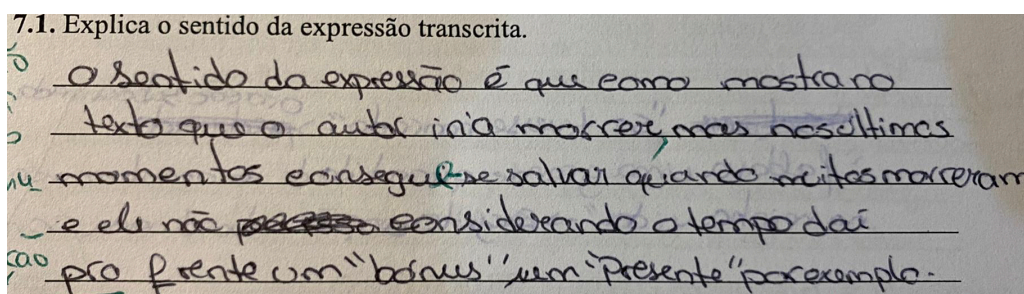 7.1. Explica o sentido da expressão transcrita.
O sentido da expressão é que como mostra no
texto que o autor iria morrer, mas nos últimos
momentos consegue-se salvar quando muitos morreram
e ele não considerando o tempo daí
pro frente um "bónus" um "Presente" por exemplo.